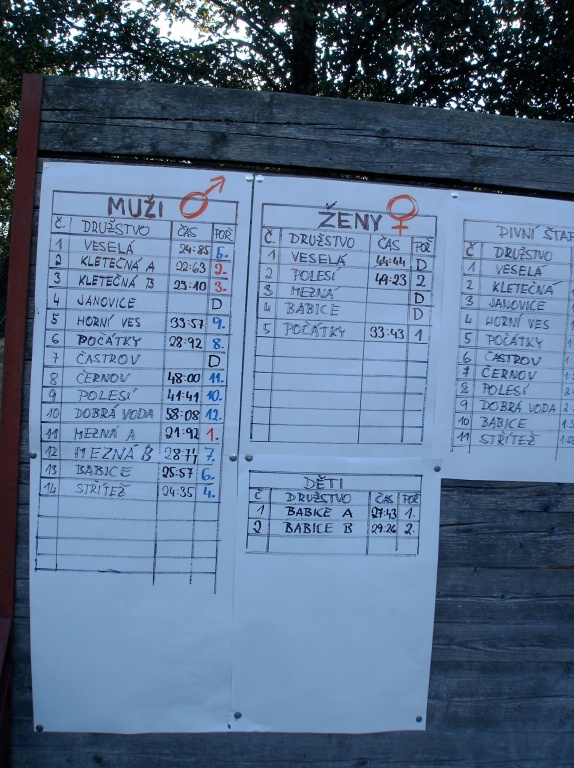 MUŽI ♂
Č. DRUŽSTVO ČAS POŘ.
1 VESELÁ 24:85 5.
2 KLETEČNÁ A 22:63 2.
3 KLETEČNÁ B 23:10 3.
4 JANOVICE D
5 HORNÍ VES 33:57 9.
6 POČÁTKY 28:92 8.
7 ČASTROV D
8 ČERNOV 48:00 11.
9 POLESÍ 41:41 10.
10 DOBRÁ VODA 58:08 12.
11 MEZNÁ A 21:92 1.
12 MEZNÁ B 28:71 7.
13 BABICE 25:57 6.
14 STŘÍTEŽ 24:35 4.
ŽENY ♀
Č. DRUŽSTVO ČAS POŘ
1 VESELÁ 44:44 D
2 POLESÍ 49:23 2
3 MEZNÁ D
4 BABICE D
5 POČÁTKY 33:43 1
DĚTI
Č DRUŽSTVO ČAS POŘ
1 BABICE A 27:43 1.
2 BABICE B 29:26 2.
PIVNÍ ŠTAF
Č DRUŽSTVO
1 VESELÁ
2 KLETEČNÁ
3 JANOVICE
4 HORNÍ VES
5 POČÁTKY
6 ČASTROV
7 ČERNOV
8 POLESÍ
9 DOBRÁ VODA
10 BABICE
11 STŘÍTEŽ